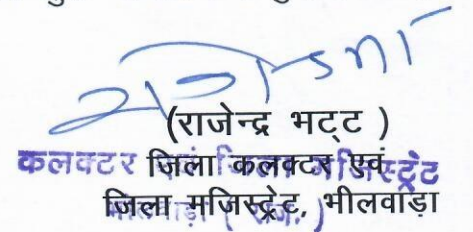 (राजेन्द्र भट्ट )
जिला कलक्टर एवं
जिला मजिस्ट्रेट, भीलवाड़ा
कलक्टर एवं जिला मजिस्ट्रेट